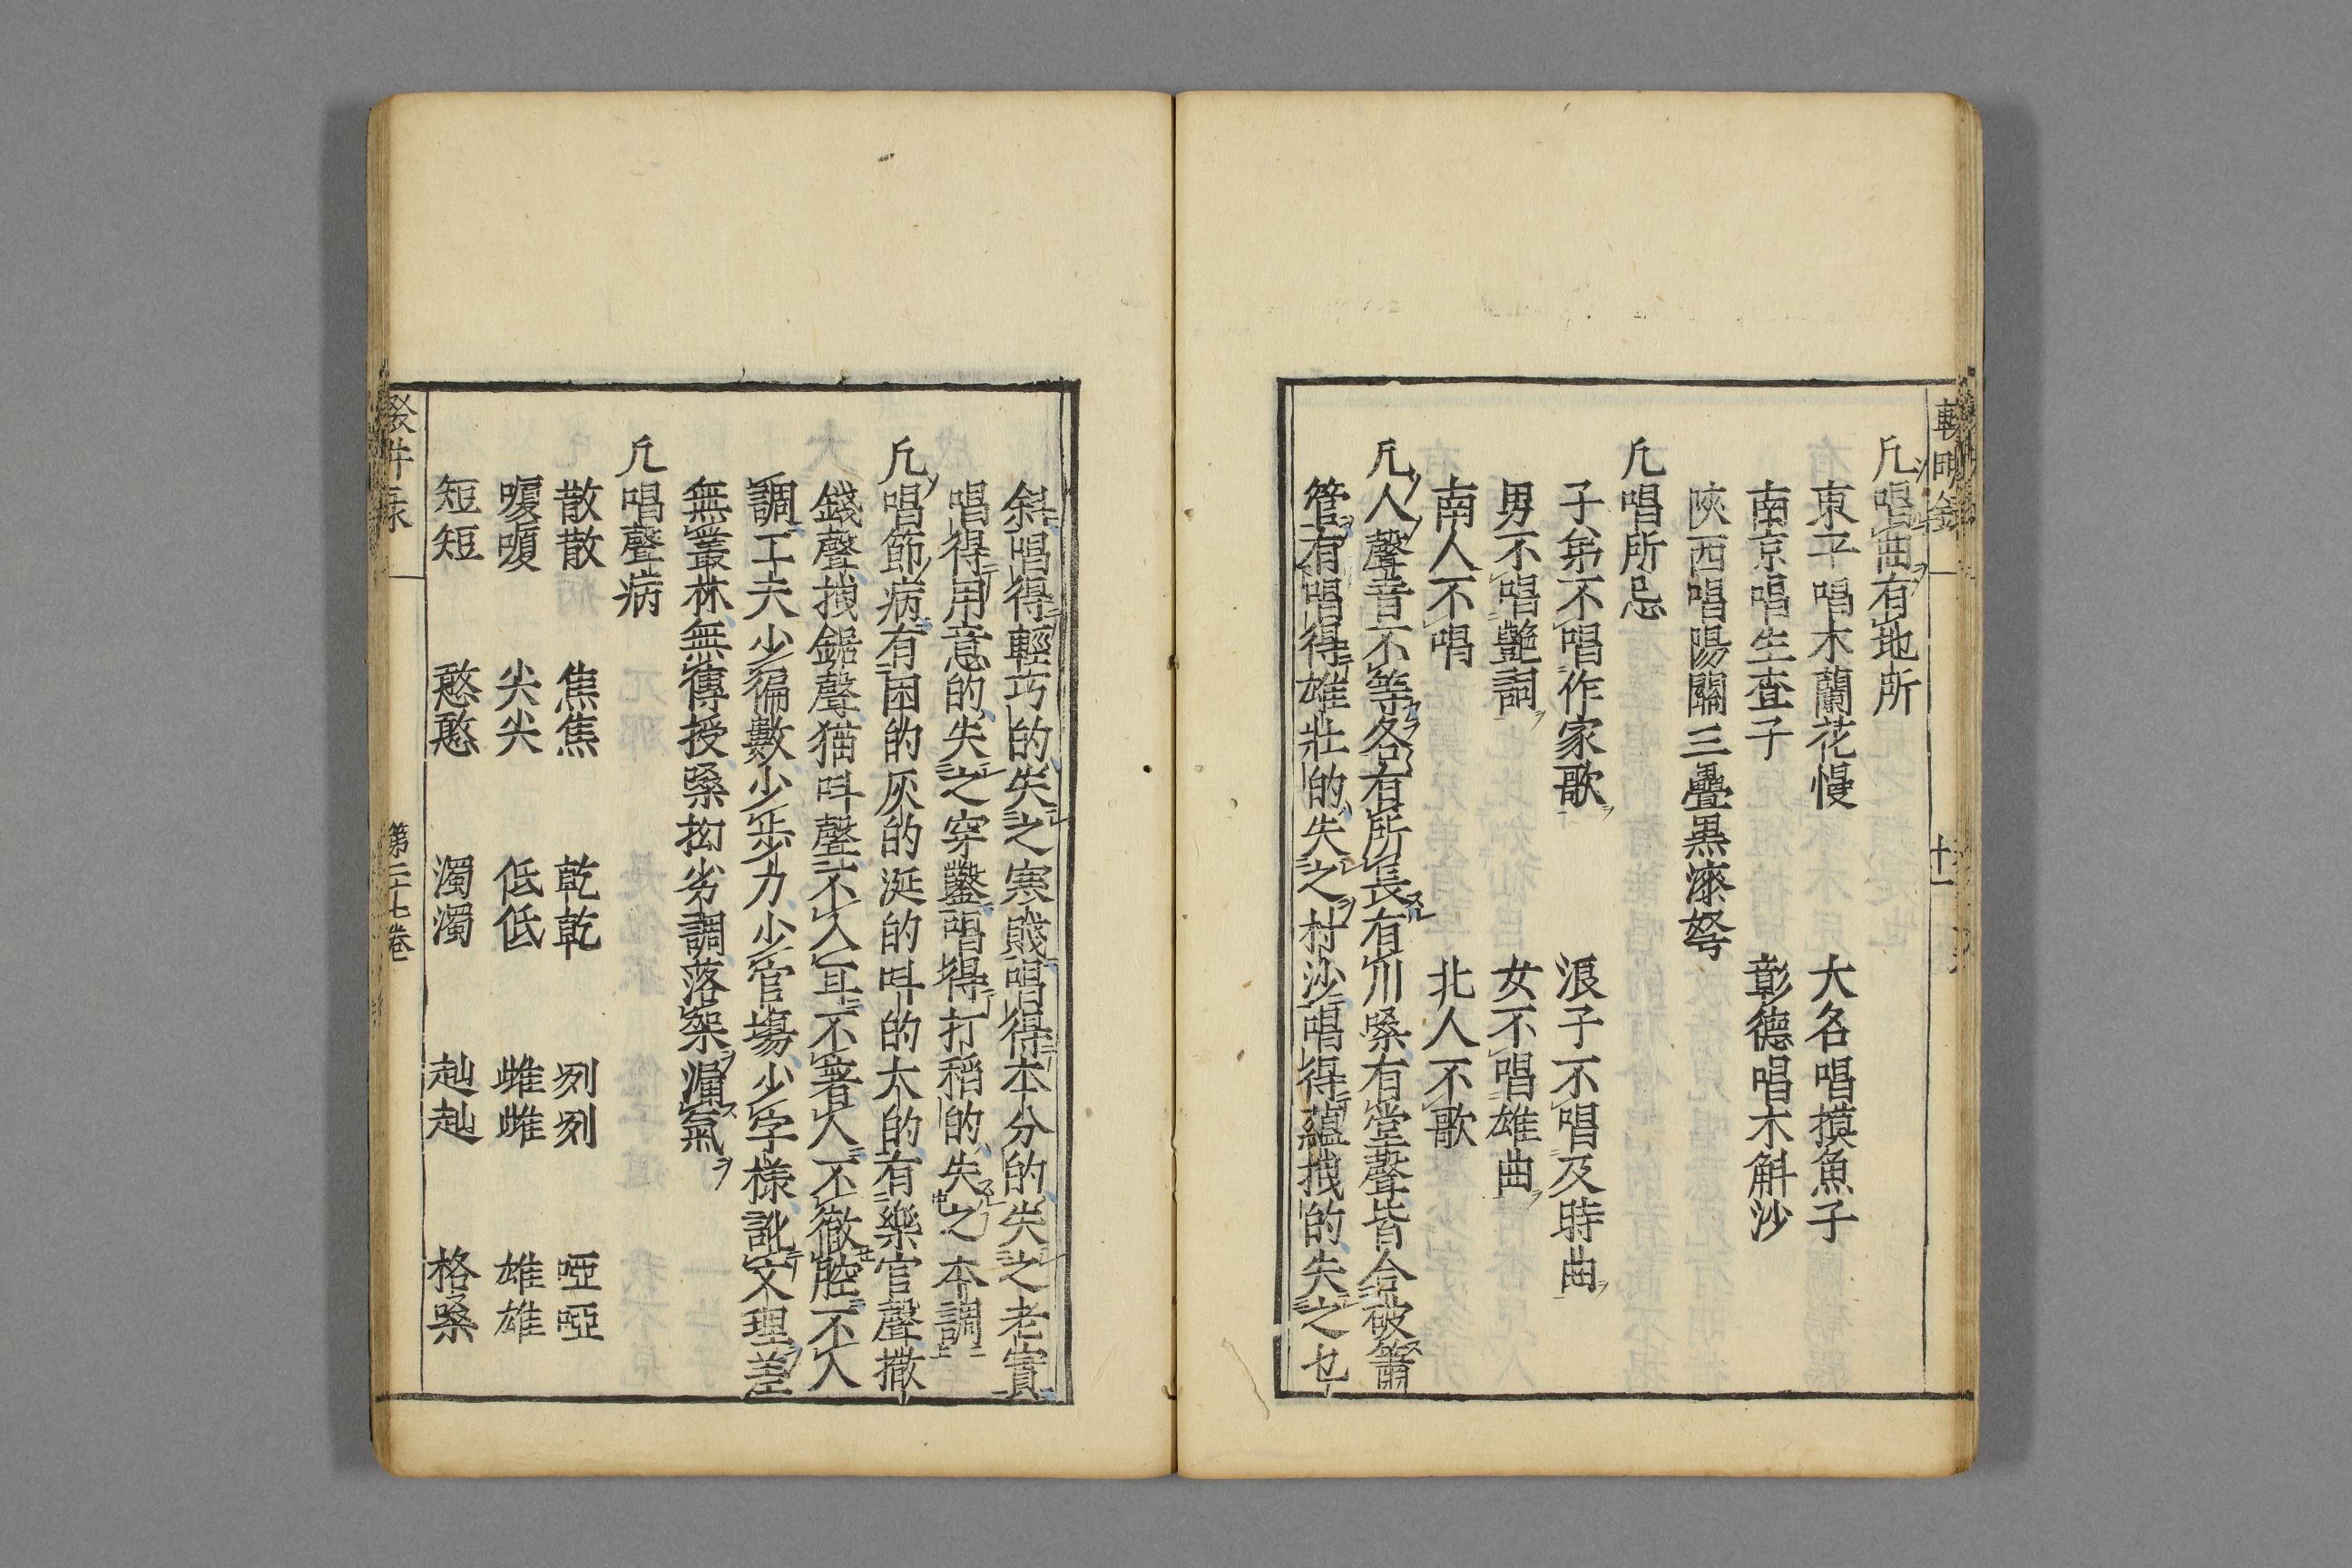 凢唱曲有地所
東平唱木蘭花慢 大名唱摸魚子
南京唱生査子 彰德唱木斛沙
陝西唱陽關三疊黒漆弩
凢唱所忌
子弟不唱作家歌 浪子不唱及時曲
男不唱艶詞 女不唱雄曲
南人不唱 北人不歌
凢人聲音不等各有所長有川嗓有堂聲皆合破簫
管有唱得雄壯的失之村沙唱得蘊拽的失之乜
斜唱得輕巧的失之寒賤唱得本分的失之老實
唱得用意的失之穿鑿唱得打稍的失之本調
凢唱節病有困的灰的涎的呌的大的有樂官聲撒
錢聲拽鋸聲猫呌聲不入耳不著人不徹腔不入
調工夫少徧數少歩力少官塲少字様訛文理差
無叢林無傳授嗓拗劣調落架漏氣
凢唱聲病
散散 焦焦 乾乾 冽冽 啞啞
嗄嗄 尖尖 低低 雌雌 雄雄
短短 憨憨 濁濁 赸赸 格嗓
第二十七卷